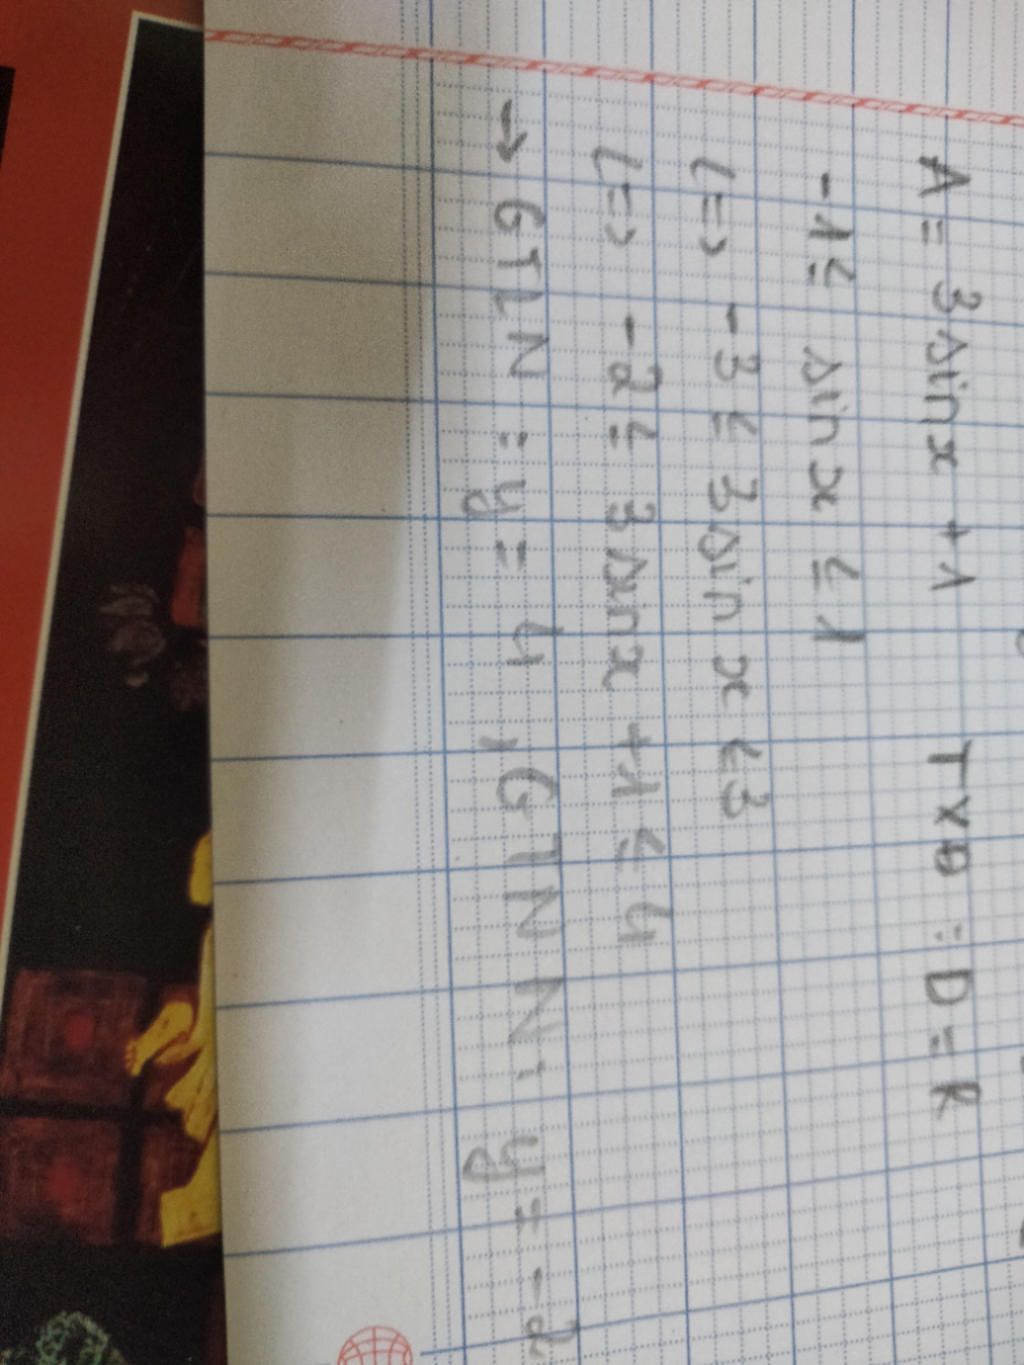 A = 3sinx + 1 TXĐ : D = R
-1 ≤ sin x ≤ 1
(=) -3 ≤ 3sin x ≤ 3
(=) -2 ≤ 3sinx + 1 ≤ 4
→ GTLN : y = 4 , GTNN : y = -2